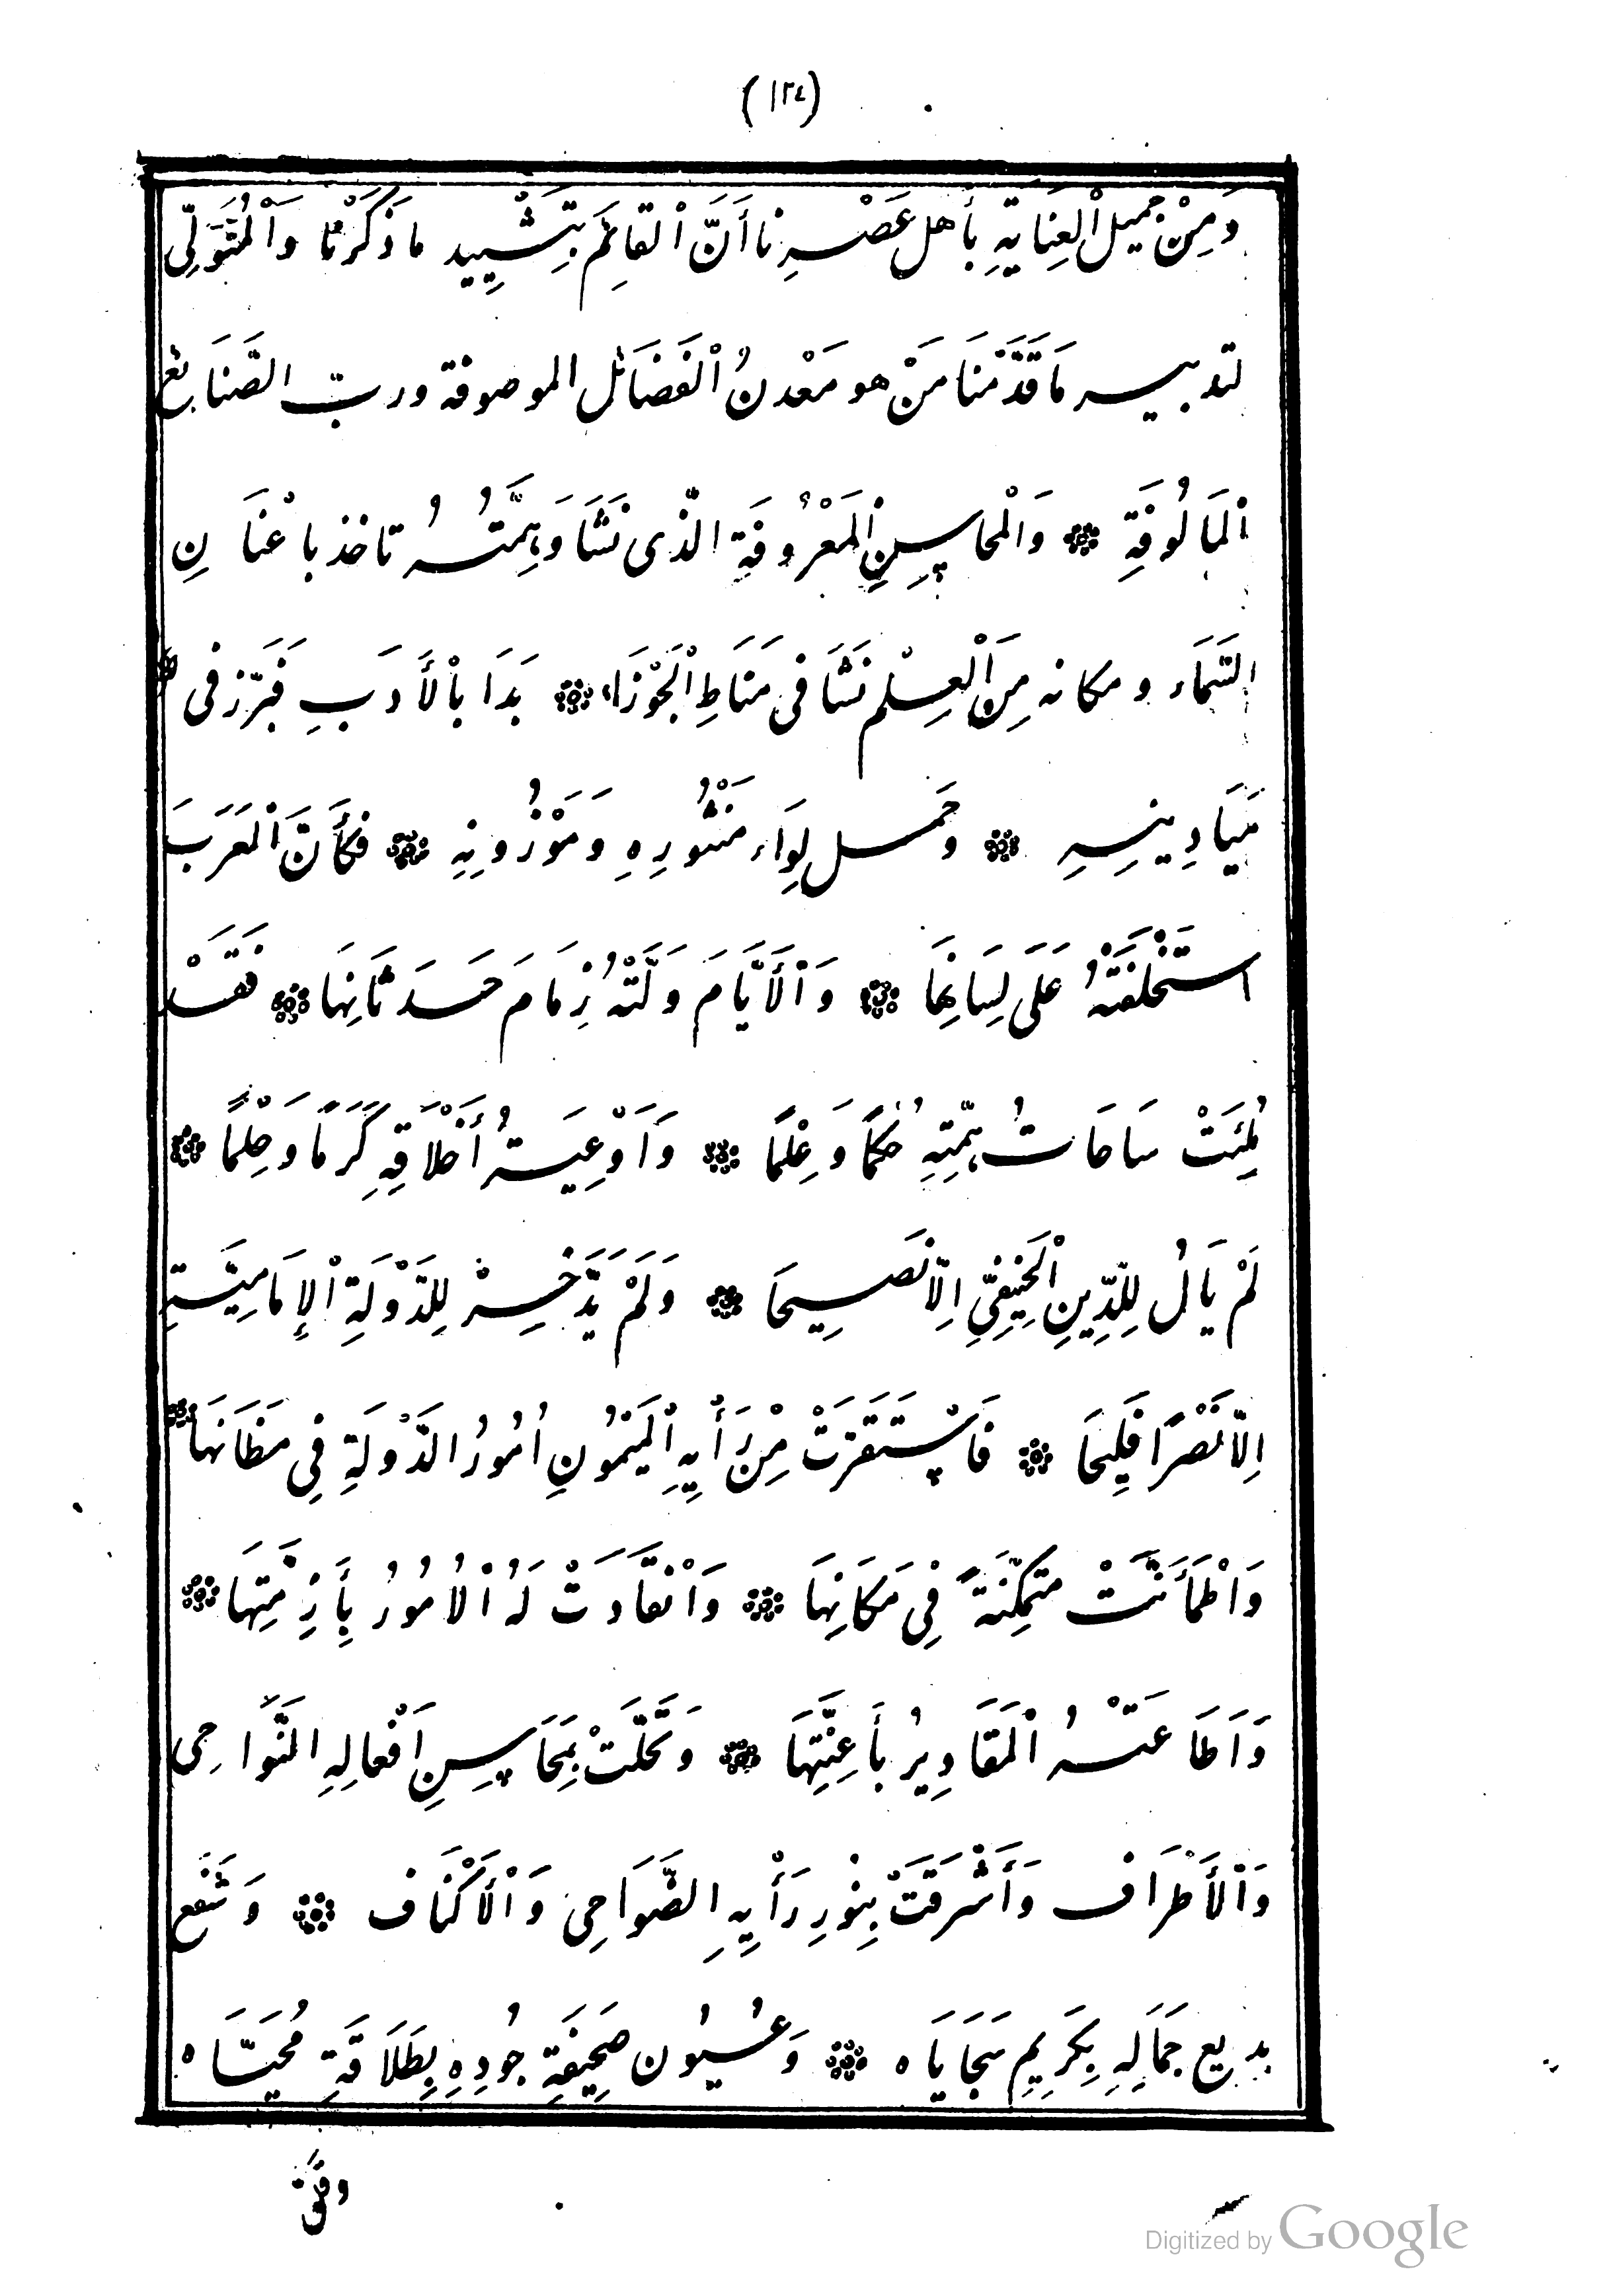 (١٢٤)
وَمِنْ جَمِيلِ اْلعِنَايَةِ بِأهل عَصْرِنا أَنَّ اْلقائِمَ بِتَشْيِيد ماذَكَرْنا وَاْلمُتَوَلِّى
لتدبير مَاقَدَّمْنَا مَنْ هو مَعْدنُ اْلفَضَائل الموصوفة وربّ الصَّنَايع
اْلمَالُوفَةِ ۞ وَاْلمحاسِنِ اْلمَعْرُوفَةِ الّذى نَشَاوَهِمَّتُهُ تاخذ باعْنَانِ
السَّمَاء ومكانه مِنَ اْلعِلْم نَشَا فى مَنَاطِ اْلجَوْزَاء ۞ بَدَا باْلأَدَبِ فَبَرّز فى
مَيَادِينِهِ ۞ وحَمل لِوَاء مَنْثُورِهِ وَمَوْزُونِهِ ۞ فَكأَنَّ اْلعَرَبَ
استَخْلَفَتْهُ عَلَى لِسَانِهَا ۞ وَاْلأَيَّامَ وَلَّتْهُ زِمَامَ حَدَثَانِهَا ۞ فَقَدْ
مُلِئَتْ سَاحَاتُ هِمَّتِهِ حُكْمًا وَعِلْمًا ۞ وَاَوْعِيَةُ أَخْلَاقِهِ كَرَمًا وَحِلْمًا ۞
لَمْ يَالُ لِلدِّينِ اْلحَنِيفِيِّ اِلّا نَصِيحَا ۞ وَلَمْ يَدَّخِرْ لِلدَّوْلَةِ اْلإِمَامِيَّةِ
اِلّا نَصْرًا فَلِيحَا ۞ فَاسْتَقَرَتْ مِنْ رَأْيِهِ اْلمَيْمُونِ اُمُورُ الدَّوْلَةِ فِى مَظَانهَا ۞
وَاطْمَأَنَّتْ متمَكِّنَةً فِى مَكَانِهَا ۞ وَانْقَادَتْ لَهُ اْلاُمُورُ بِأَزِمَّتِهَا ۞
وَاَطَاعَتْهُ اْلمَقَادِيرُ بأَعِنَّتِهَا ۞ وَتَحَلَّتْ بِمَحَاسِنِ اَفْعالِهِ النَّوَاحِى
وَاْلأَطْرَاف وَأَشْرَقَتْ بِنُورِ رَأْيِهِ الضَّوَاحِى وَاْلأَكْنَاف ۞ وَشَفَع
بديع جَمَالِهِ بِكَرِيمِ سَجَايَاه ۞ وَعُيُون صَحِيفَةِ جُودِهِ بِطَلَاقَةِ مُحَيَّاه
وفق
Digitized by Google